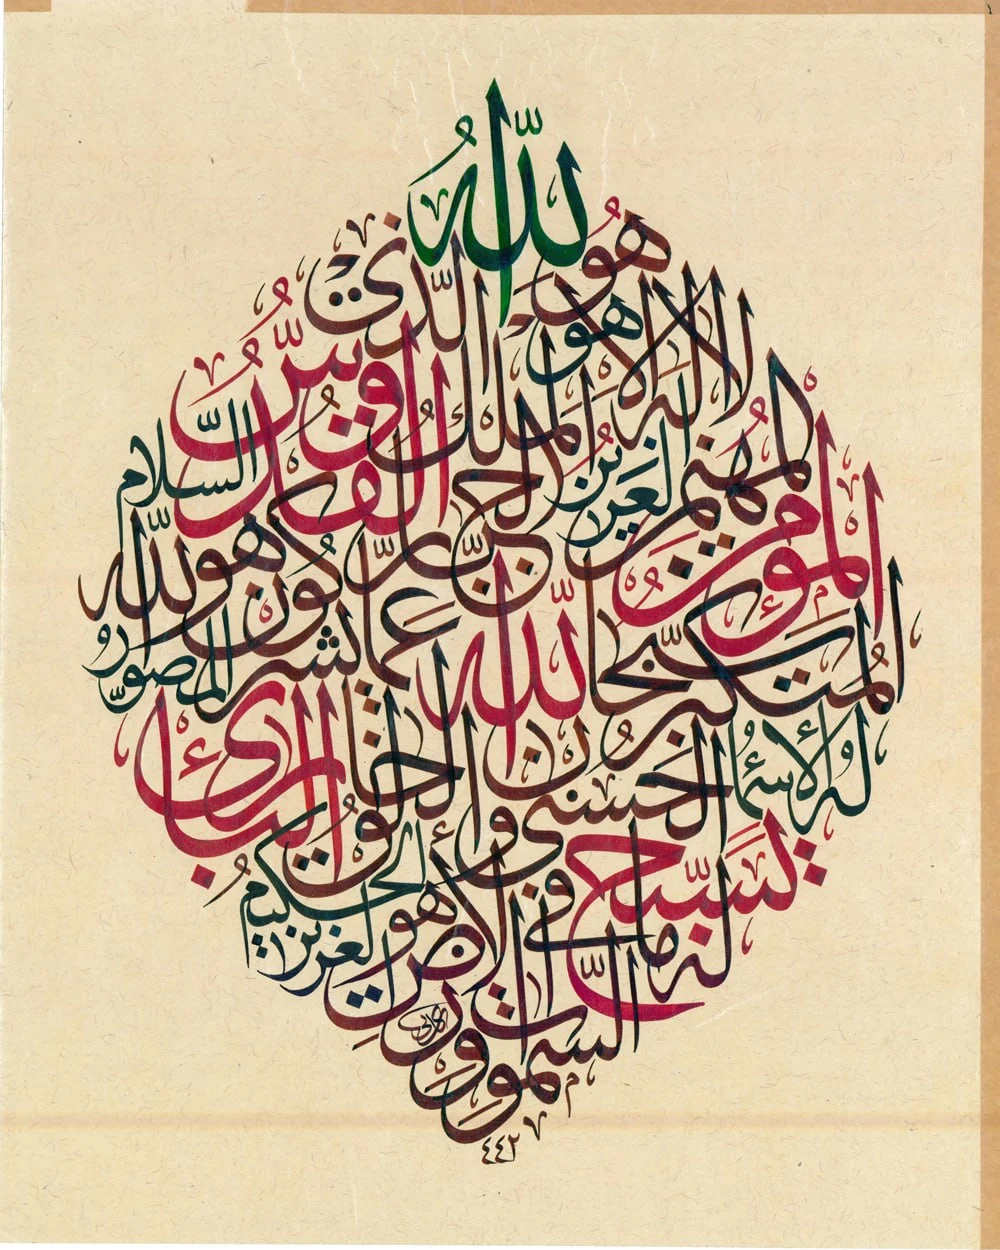 هو الله الذي لا إله إلا هو الملك القدوس السلام المؤمن المهيمن العزيز الجبار المتكبر سبحان الله عما يشركون هو الله الخالق البارئ المصور له الأسماء الحسنى يسبح له ما في السموات والأرض وهو العزيز الحكيم